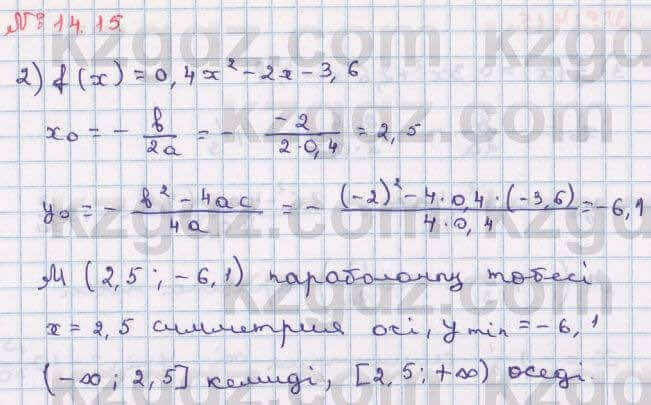 № 14.15
2) f(x) = 0,4x² - 2x - 3,6
x₀ = - b/2a = - -2/2·0,4 = 2,5
y₀ = - b² - 4ac/4a = - (-2)² - 4·0,4·(-3,6)/4·0,4 = -6,1
M (2,5 ; -6,1) параболаның төбесі
x = 2,5 симметрия осі, y min = -6,1
(-∞; 2,5] кемиді, [2,5; +∞) өседі.
kzgdz.com